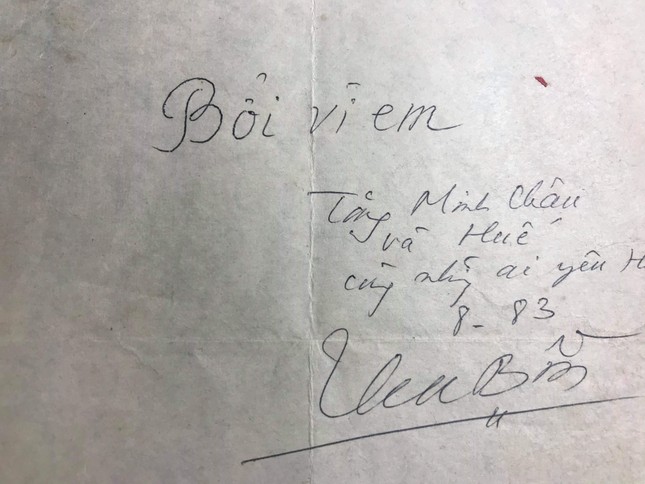 Bôỉ vì em
Tặng Minh Châu
và Huế
cùng những ai yêu H
8-83
Thu Bồn